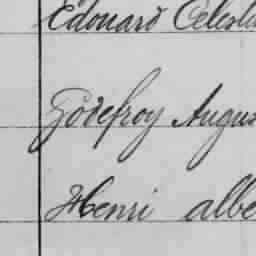 Edouard Celest
Godefroy Augus
Henri albe